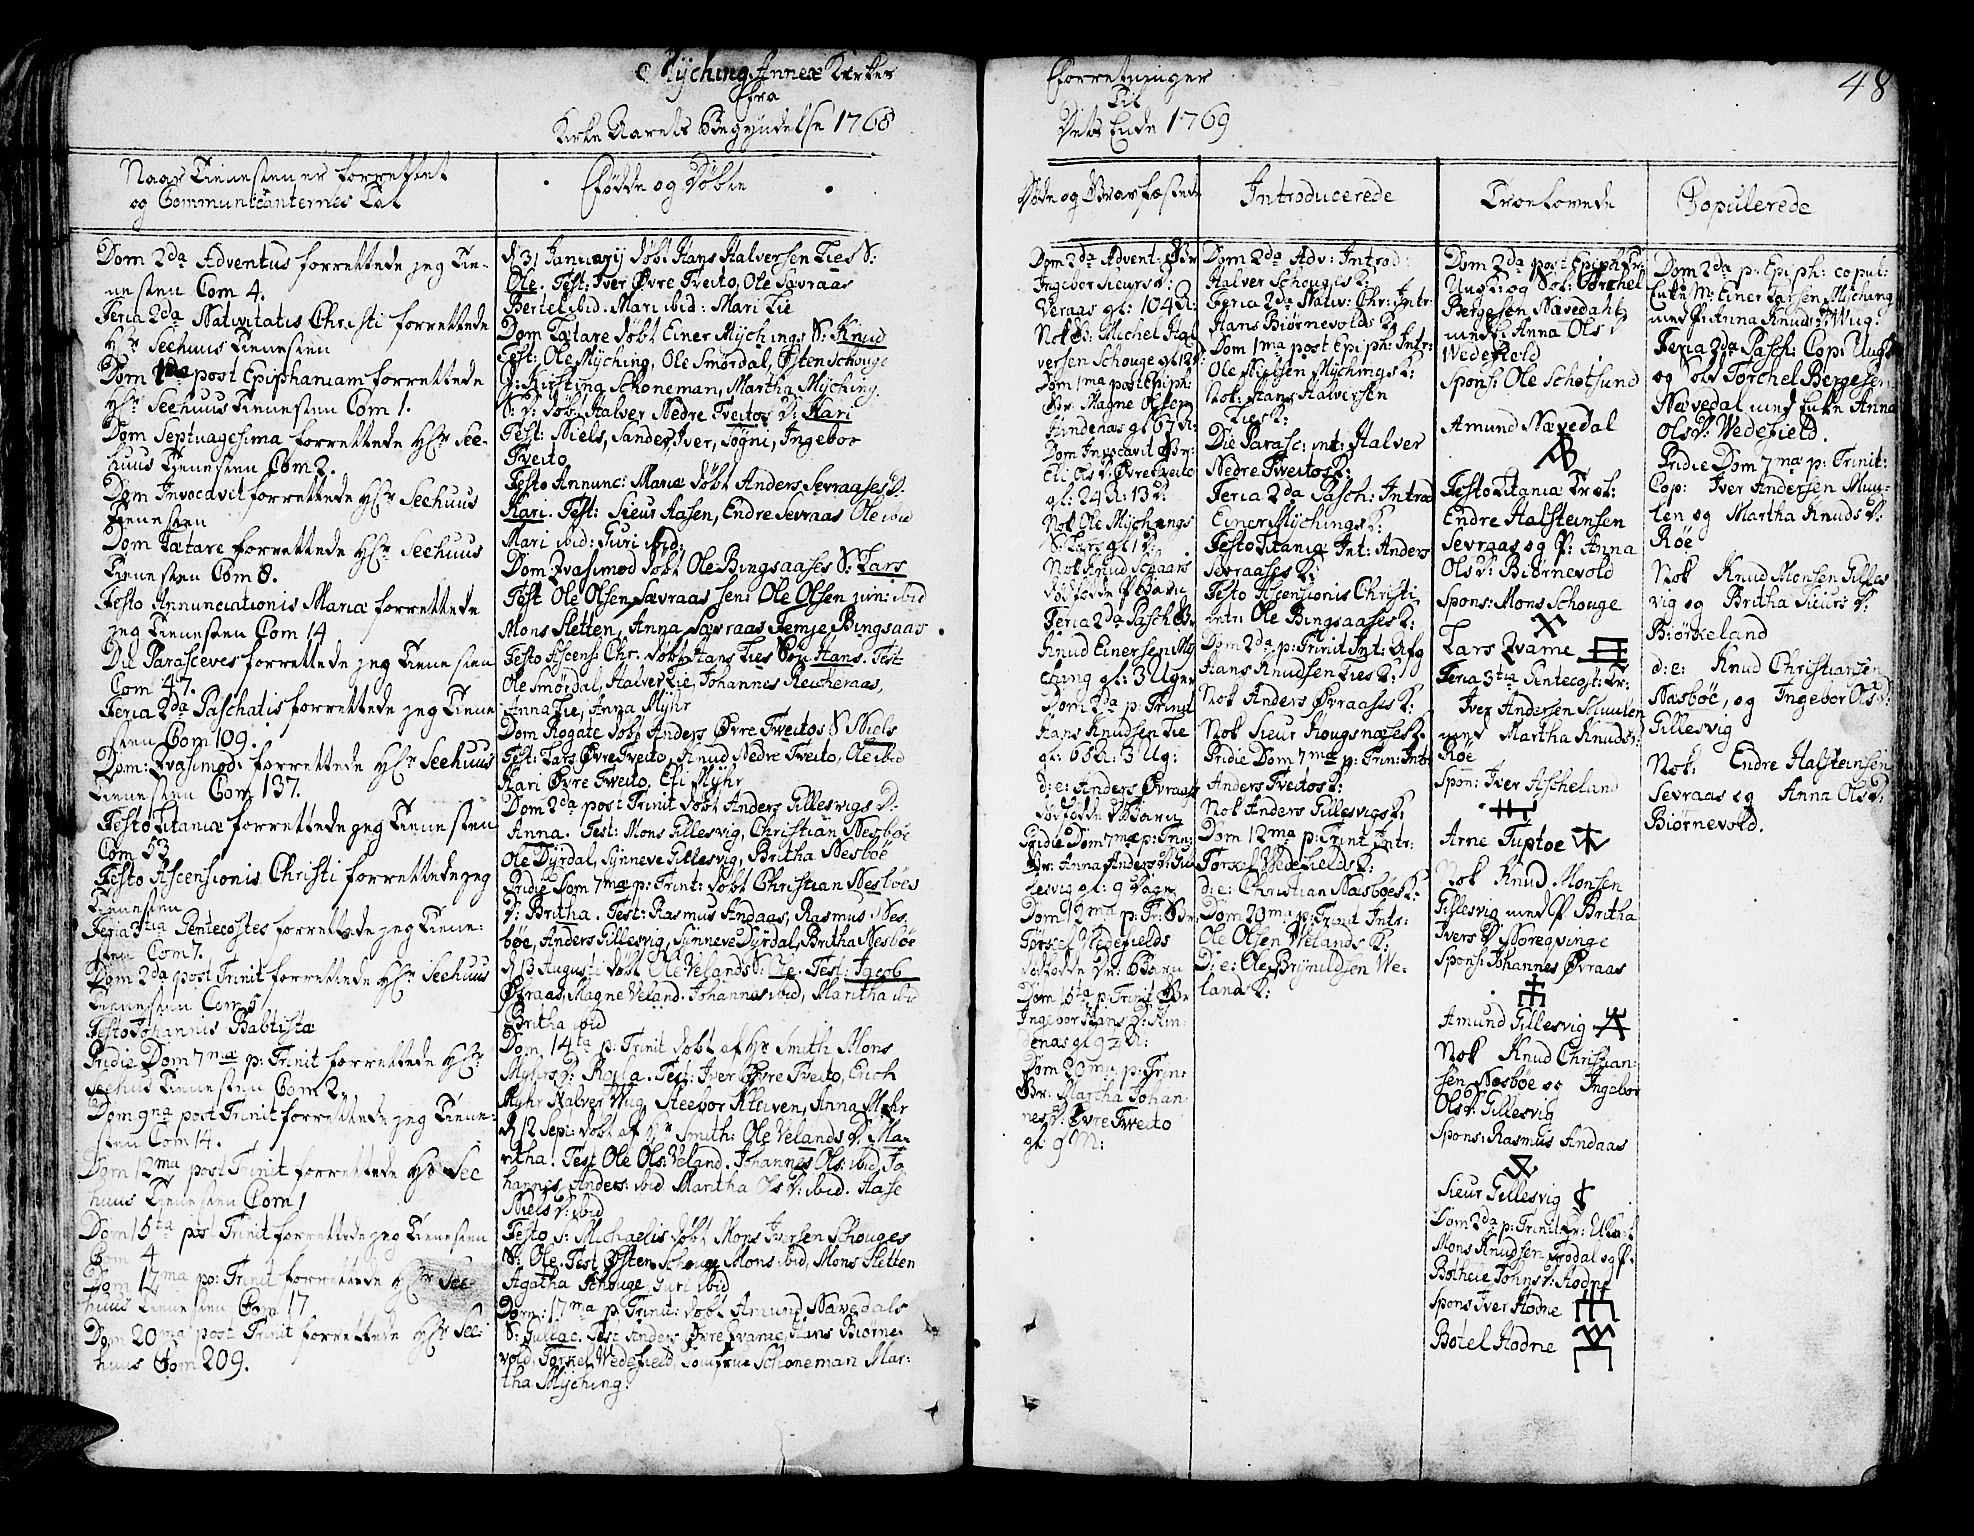 Mÿching Annex Kirkes
fra
Kirke Aarets Begyndelse 1768
Naar Tienesten er forrettet
og Communicanternes Tal
Dom 2da Adventus forrettede jeg Tie-
nesten Com 4.
Feria 2da Nativitatis Christi forrettede
Hr Seehuus Tienesten
Dom post Epiphaniam forrettede
Hr Seehuus Tienesten Com 1.
Dom Septuagesima forrettede Hr See-
huus Tienesten Com 2.
Dom Invocavit forrettede Hr Seehuus
Tienesten
Dom Lætare forrettede Hr Seehuus
Tienesten Com 8.
Festo Annunciationis Mariæ forrettede
jeg Tienesten Com 14
Die Parasceves forrettede jeg Tienesten
Com 47.
Feria 2da Paschatis forrettede jeg Tiene
sten Com 109.
Dom: Qvasimod: forrettede Hr Seehuus
Tienesten Com 137.
Festo Litaniæ forrettede jeg Tienesten
Com 53
Festo Ascensionis Christi forrettede jeg
Tienesten
Feria 3tia Pentecostes forrettede jeg Tiene-
sten Com 7.
Dom 2da post Trinit forrettede Hr Seehuus
Tienesten Com 5
Festo Johannis Babtistæ
Pridie Dom 7mæ p: Trinit forrettede Hr
Seehus Tienesten Com 2.
Dom 9na post Trinit forrettede jeg Tiene-
sten Com 14.
Dom 12ma post Trinit forrettede Hr See
huus Tienesten Com 1
Dom 15ta post Trinit forrettede jeg Tienesten
Com 4
Dom 17ma po: Trinit forrettede Hr See-
huus Tienesten Com 17
Dom 20ma post Trinit forrettede Hr See-
huus Com 209.
Fødde og Døbte
d 31 Januarij døbt Hans Halversen Lies S:
Ole. Test: Iver Øvre Tveito, Ole Sævraas
Bertel ibid: Mari ibid: Mari Lie
Dom Lætare døbt Einer Mÿchings S: Knud
Test: Ole Mÿching, Ole Smørdal, Østen Schouge
Kirsting Schoneman, Martha Mÿching.
S: D: døbt Halver Nedre Tveitos D: Kari
Test: Niels, Sander, Iver, Søgni, Ingebor
Tveito
Festo Annunc: Mariæ døbt Anders Sevraases D:
Kari. Test: Sieur Aasen, Endre Sevraas Ole ibid
Mari ibid: Guri ibid:
Dom: Qvasimod døbt Ole Bingsaases S: Lars
Test Ole Olsen Sævraas sen: Ole Olsen jun: ibid
Mons Sletten, Anna Sævraas Bingsaas
Festo Ascens: Chr. døbt Hans Lies Søn Hans. Test
Ole Smørdal, Halver Lie, Johannes
Anna Lie, Anna Mÿhr
Dom Rogate døbt Anders Øvre Tveitos S Niels
Test: Lars Øvre Tveito, Knud Nedre Tveito, Ole ibid
Kari Øvre Tveito, Eli Mÿhr
Dom 2da post Trinit døbt Anders Gillesvigs D:
Anna. Test: Mons Gillesvig, Christian Nesbøe
Ole Dÿrdal, Sÿnneve Gillesvig, Britha Nesbøe
Pridie Dom 7mæ p: Trinit: døbt Christian Nesbøes
D: Britha. Test: Rasmus Andaas, Rasmus Nes-
bøe, Anders Gillesvig, Sÿnneve Dÿrdal, Britha Nesbøe
d 13 Augusti døbt Ole Velands S: Test: Jacob
Øvraas, Magne Veland. Johannes ibid, Maritha ibid
Britha ibid
Dom 14ta p: Trinit døbt af Hr Smith Mons
Mÿhrs D: Test: Iver Øvre Tveito, Erich
Mÿhr Halver Wiig, Steebor Kleiven, Anna Mÿhr
d 12 Sept: døbt af Hr Smith: Ole Velands D: Ma-
ritha. Test Ole Ols: Veland. Johannes Ols: ibid, Jo
hannes Anders: ibid Maritha Ols D: ibid. Aase
Niels D: ibid
Festo S: Michaelis døbt Mons Iversen Schouges
S: Ole. Test Østen Schouge Mons ibid, Mons Sletten
Agatha Schouge, Guri ibid
Dom: 17ma p Trinit: døbt Amund Nævedals
S: Test Anders Øvre Qvame, Hans Biørne-
vold, Torkel Wedefield, Schoneman Mar-
tha Mÿching.
Forretninger
Til
Dets Ende 1769
48
Døde og Begravede
Dom 2da Advent: Br
Ingebor Sieurs D:
Veraas gl: 104 A:
Nok B: Michel Hal
versen Schouge gl 12 D:
Dom 1ma post Epiph:
Br. Magne Olsen
gl 67 A:
Dom Invocavit Br:
Eli Ols D: Øvre Tveito
gl: 24 A: 13 D
Nok Ole Mÿchings
S: Lars gl 1 D:
Nok Knud
dødfødde P Barn
Feria 2da Pasch Br
Knud Einersen Mÿ
ching gl: 3 Uger
Dom 2da p: Trinit
Hans Knudsen Lie
gl: 68 A: 3 Ug:
d: e: Anders Øvraas
dødfødde D Barn
Pridie Dom 7mæ p: Trin:
Br: Anna Anders D: Gil
lesvig gl: 9 Dage
Dom 12ma p: Tr: Br.
Torkel Wedefields
dødfødde Dr: Barn
Dom 15ta p: Trinit Br
Ingebor Hans D:
Dom 20ma p: Trin:
Br. Martha Johan-
nes D: Øvre Tveito
gl: 9 M:
Introducerede
Dom 2da Adv: Introd:
Halver Schouges K:
Feria 2da Nativ: Chr: Intr:
Hans Biørnevolds K:
Dom 1ma post Epiph: Intr:
Ole Nielsen Mÿchings K:
Nok: Hans Halversen
Lies K:
Die Parasc: int: Halver
Nedre Tveitos K:
Feria 2da Pasch: Introd
Einer Mÿchings K:
Festo Litaniæ Int: Anders
Sevraases K:
Festo Ascensionis Christi
intr: Ole Bingsaases K:
Dom 2da p: Trinit Int: Afg
Hans Knudsen Lies K:
Nok Anders Øvraases K:
Nok Sieur Hougsnæses K:
Pridie Dom 7mæ p: Trin: Intr
Anders Tveitos K:
Nok Anders Gillesvigs K:
Dom 12ma p: Trinit Intr:
Torkel Wedefields K:
d: e: Christian Næsbøes K:
Dom 20ma p: Trinit Intr:
Ole Olsen Welands K:
D: e: Ole Brÿnildsen We-
lands K:
Troelovede
Dom 2da post Epiph: Tr:
Ung K: og Sol: Torchel
Bergesen Nævedahl
med E: Anna Ols D
Wedefield
Spons: Ole Schotsund
Amund Nævedal
Festo Litaniæ Trol:
Endre Halsteinsen
Sevraas og P: Anna
Ols D: Biørnevold
Spons: Mons Schouge
Lars Qvame
Feria 3tia Pentecost: Tr:
Iver Andersen Muulen
med Martha Knuds D:
Røe
Spon: Iver Ascheland
Arne Tuptoe
Nok Knud Monsen
Gillesvig med P Britha
Ivers D Noreqvinge
Spons: Johannes Øvraas
Amund Gillesvig
Nok Knud Christian-
sen Næsbøe og Ingebor
Ols D: Gillesvig
Spons: Rasmus Andaas
Sieur Gillesvig
Dom 2da p: Trinit Tr:
Mons Knudsen og P:
Bothele Johns D: Hodne
Spons Iver Hodne
Botel Hodne
Copulerede
Dom 2da p: Epiph: copul:
Enke M: Einer Larsen Mÿching
med P: Anna Knuds D: Wiig.
Feria 2da Pasch: Cop: Ungk
og Sold Torchel Bergesen
Nævedal med Enke Anna
Ols D: Wedefield.
Pridie Dom 7mæ p: Trinit:
Cop: Iver Andersen Muu-
len og Martha Knuds D:
Røe
Nok Knud Monsen Gilles
vig og Britha Sieurs D:
Biørkeland
d: e: Knud Christiansen
Næsbøe, og Ingebor Ols D:
Gillesvig
Nok: Endre Halsteinsen
Sevraas og Anna Ols D:
Biørnevold.